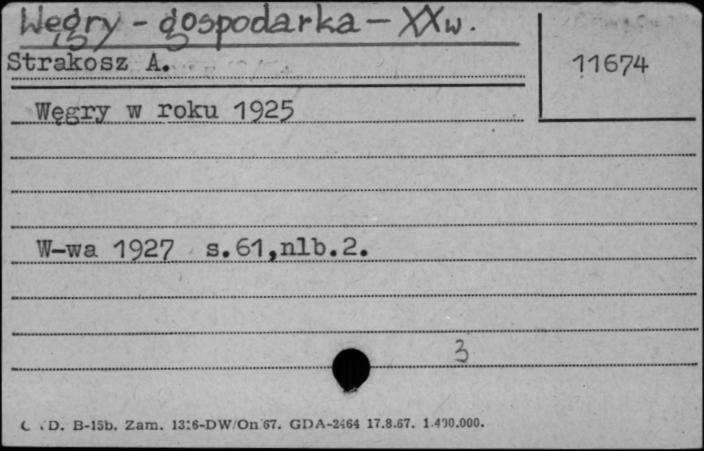 Węgry - gospodarka - XXw.
Strakosz A.
11674
Węgry w roku 1925
W-wa 1927 s.61,nlb.2.
3
D. B-15b. Zam. 1316-DW/On/67. GDA-2464 17.8.67. 1.400.000.